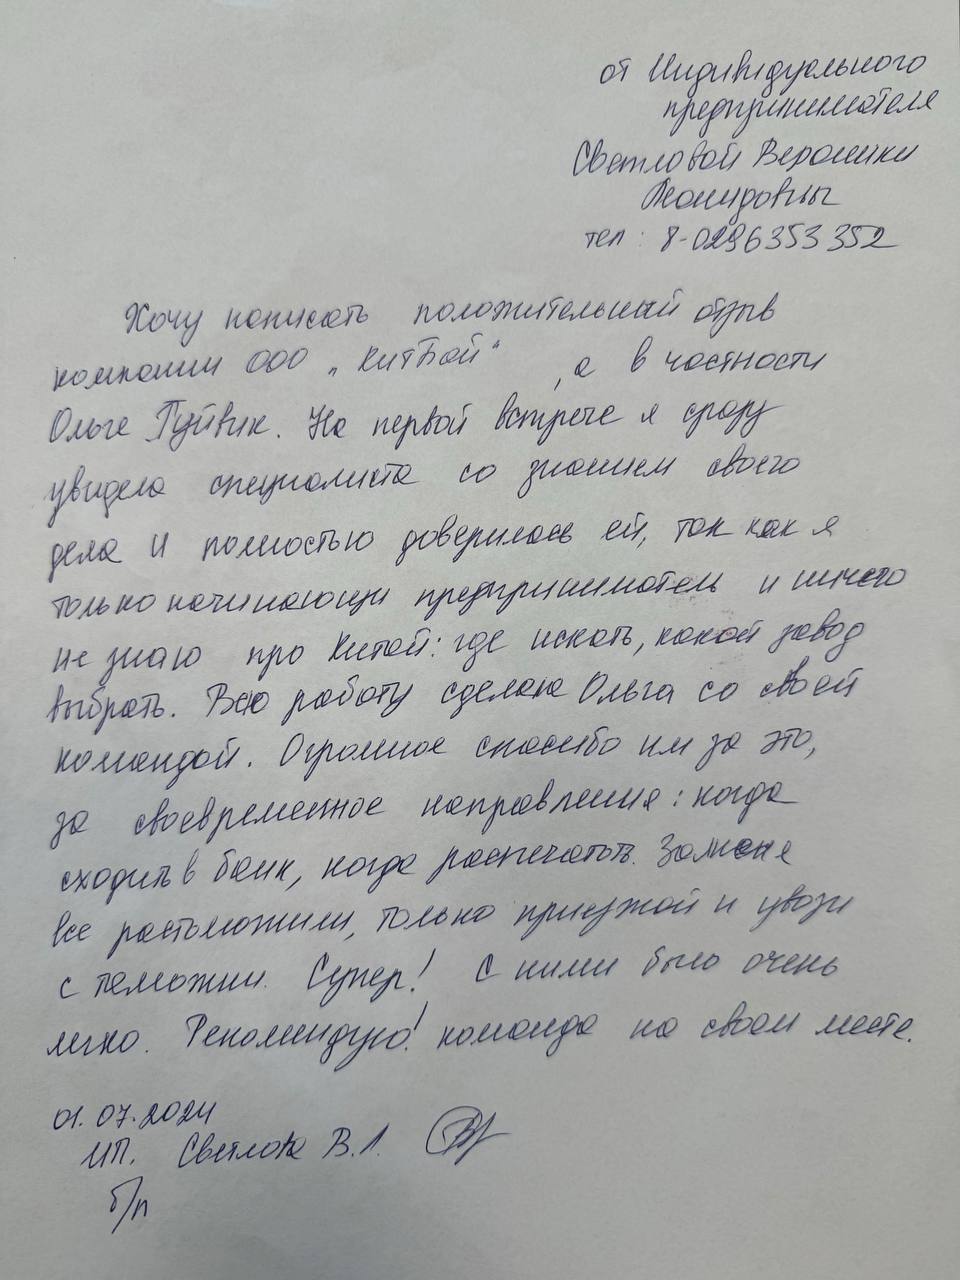 от Индивидуального
предпринимателя
Светловой Вероники
Леонидовны
тел: 8-0296353352
Хочу написать положительный отзыв
компании ООО "КитБай", а в частности
Ольге Гуйвик. На первой встрече я сразу
увидела специалиста со знанием своего
дела и полностью доверилась ей, так как я
только начинающи предприниматель и ничего
не знаю про Китай: где искать, какой завод
выбрать. Всю работу сделана Ольга со своей
командой. Огромное спасибо им за это,
за своевременное направления: когда
сходить в банк, когда распечатать. За меня
все растоможили, только приезжай и увози
с таможни. Супер! С ними было очень
легко. Рекомендую! команда на своем месте.
01.07.2024
ИП. Светлова В.Л.
б/п